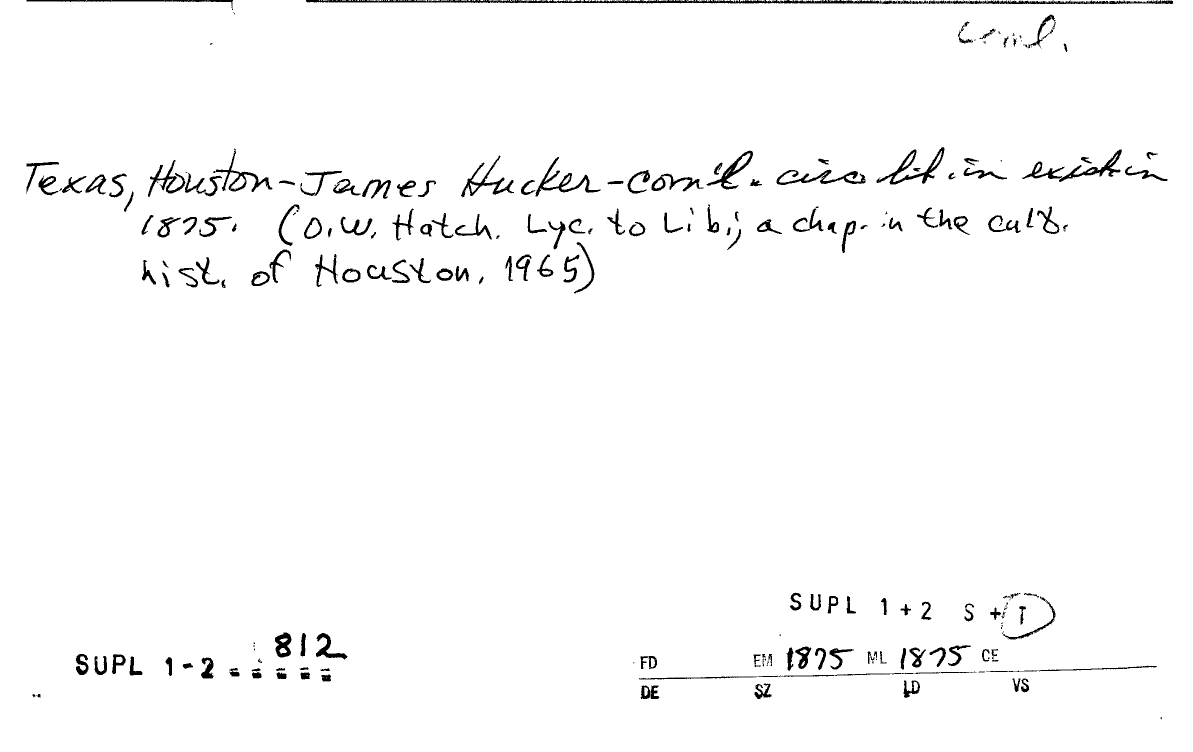 coml.
Texas, Houston-James Hucker-com'l. circ lib. in exist in
1875. (O.W. Hatch. Lyc. to Lib.; a chap. in the cult.
hist. of Houston, 1965)
SUPL 1+2 S+T
812
SUPL 1-2
FD EM 1875 ML 1875 CE
DE SZ LD VS